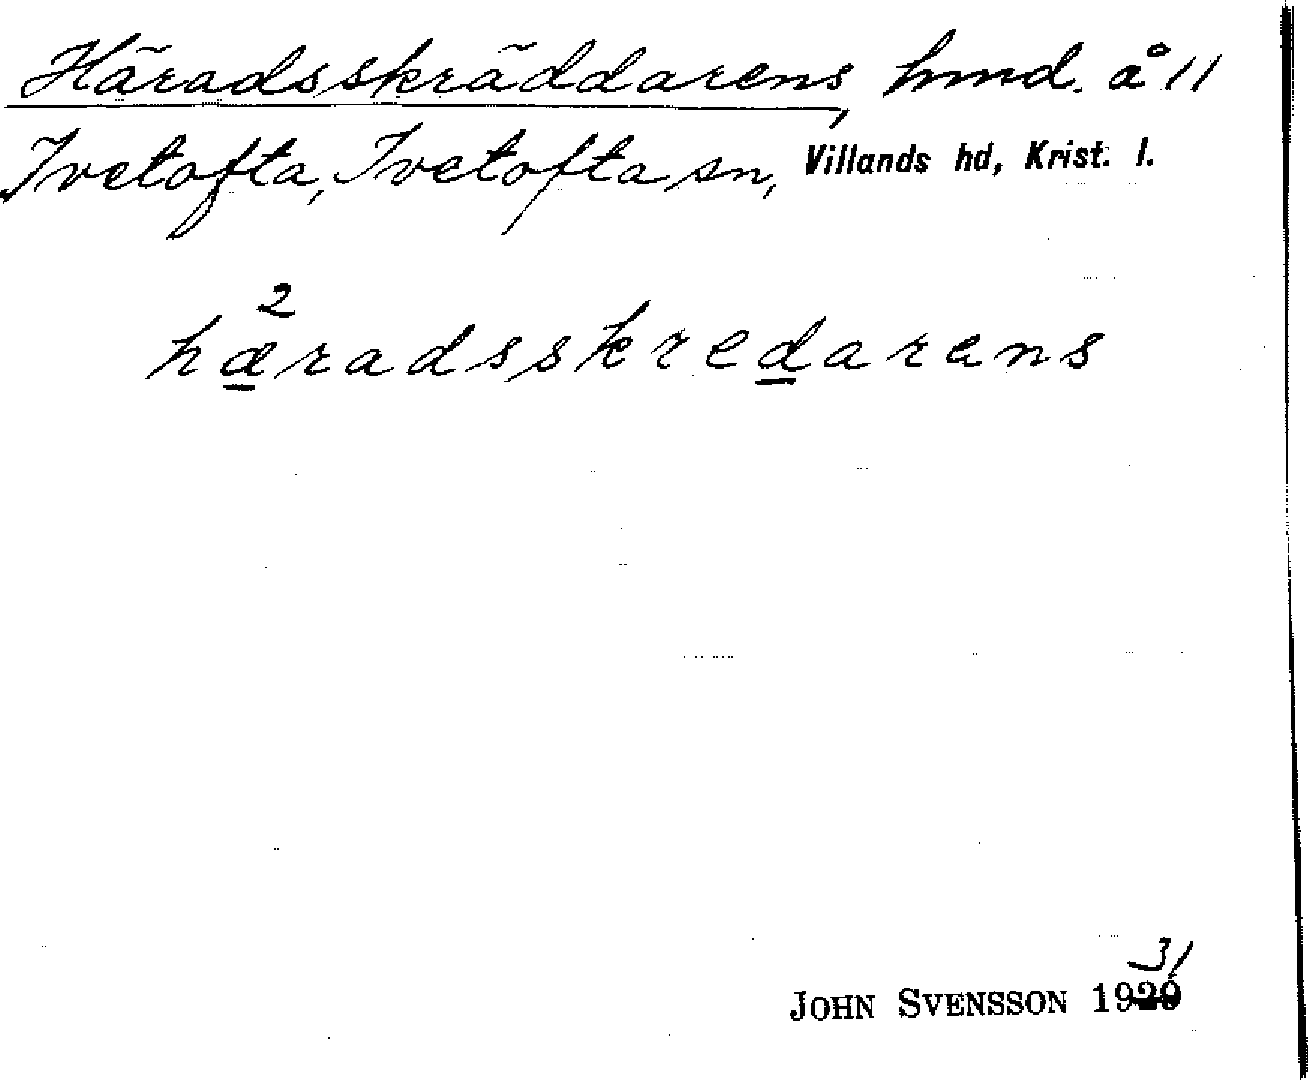 Häradsskräddarens, hmd. å 11
Ivetofta, Ivetofta sn, Villands hd, Krist. l.
2
hæradsskredarens
31
JOHN SVENSSON 1920